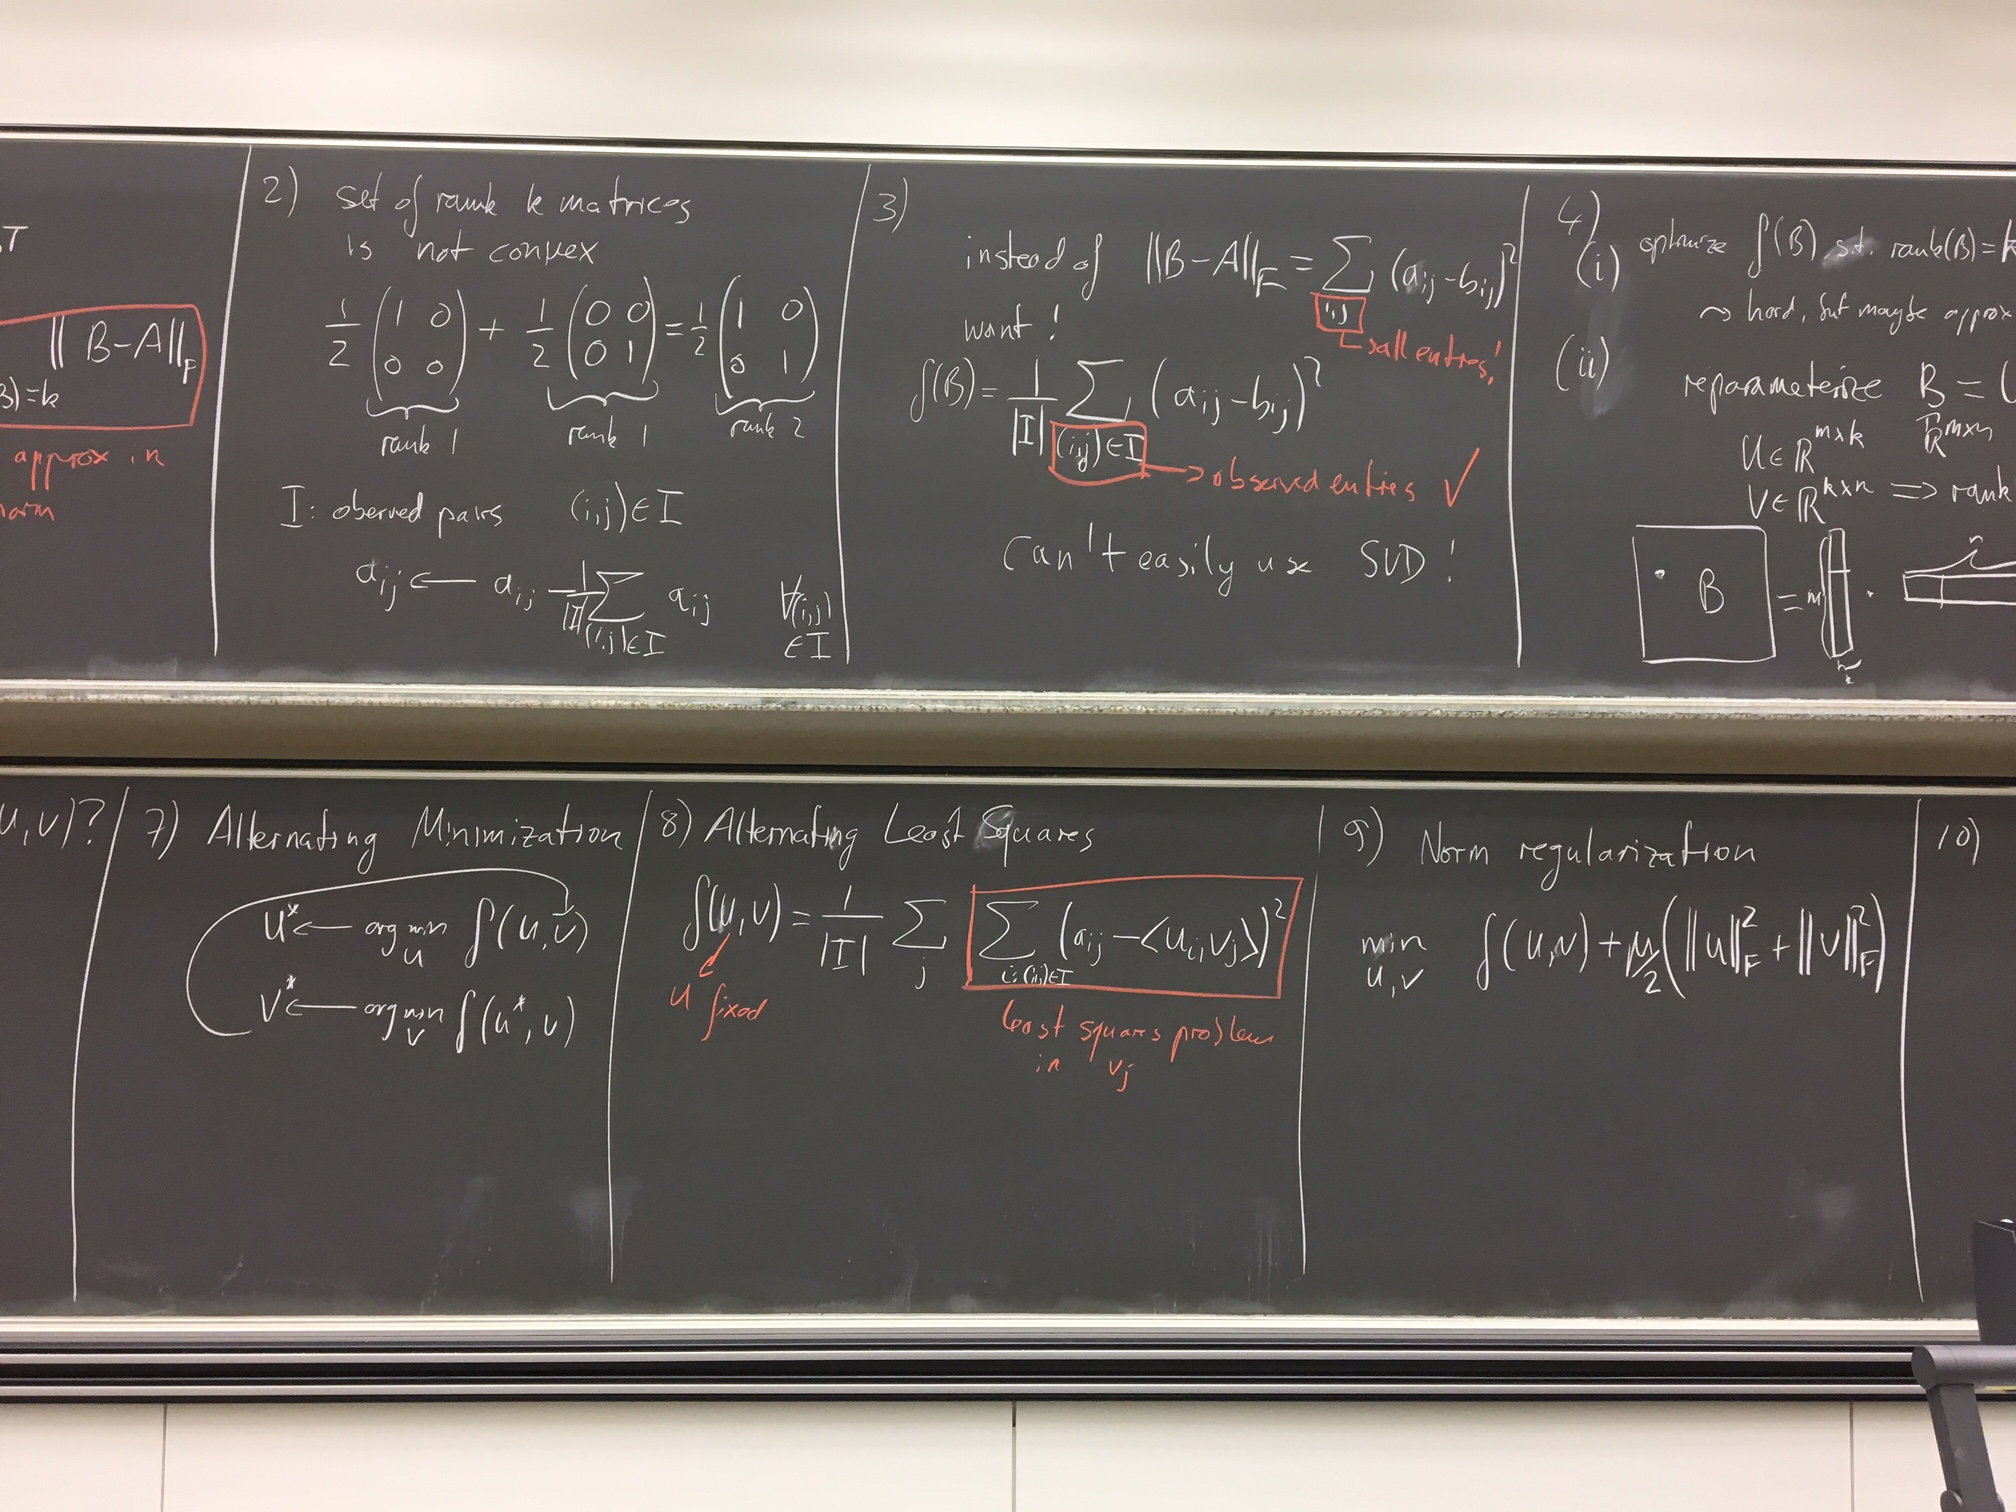 T
‖ B-A‖_F
B)=k
approx in
norm
2) set of rank k matrices
is not convex
1/2 (1 0; 0 0) + 1/2 (0 0; 0 1) = 1/2 (1 0; 0 1)
rank 1 rank 1 rank 2
I: oberved pairs (i,j)∈I
a_ij ← a_ij - 1/|I| ∑_(i,j)∈I a_ij ∀(i,j) ∈ I
3)
instead of ‖B-A‖_F = ∑_i,j (a_ij - b_ij)²
↳ all entries!
want!
f(B) = 1/|I| ∑_(i,j)∈I (a_ij - b_ij)²
→ observed entries ✓
Can't easily use SVD!
4)
(i) optimize f(B) s.t. rank(B)=k
⤳ hard, but maybe approx
(ii)
reparameterize B = U
U∈ℝ^m×k ℝ^m×n
V∈ℝ^k×n ⇒ rank
B = m · n
k
u,v)?
7) Alternating Minimization
u* ← argmin_u f(u,v)
v* ← argmin_v f(u*,v)
8) Alternating Least Squares
f(u,v) = 1/|I| ∑_j ∑_i:(i,j)∈I (a_ij - <u_i,v_j>)²
u fixed
least squares problem
in v_j
9) Norm regularization
min_u,v f(u,v) + μ/2 (‖u‖_F² + ‖v‖_F²)
10)